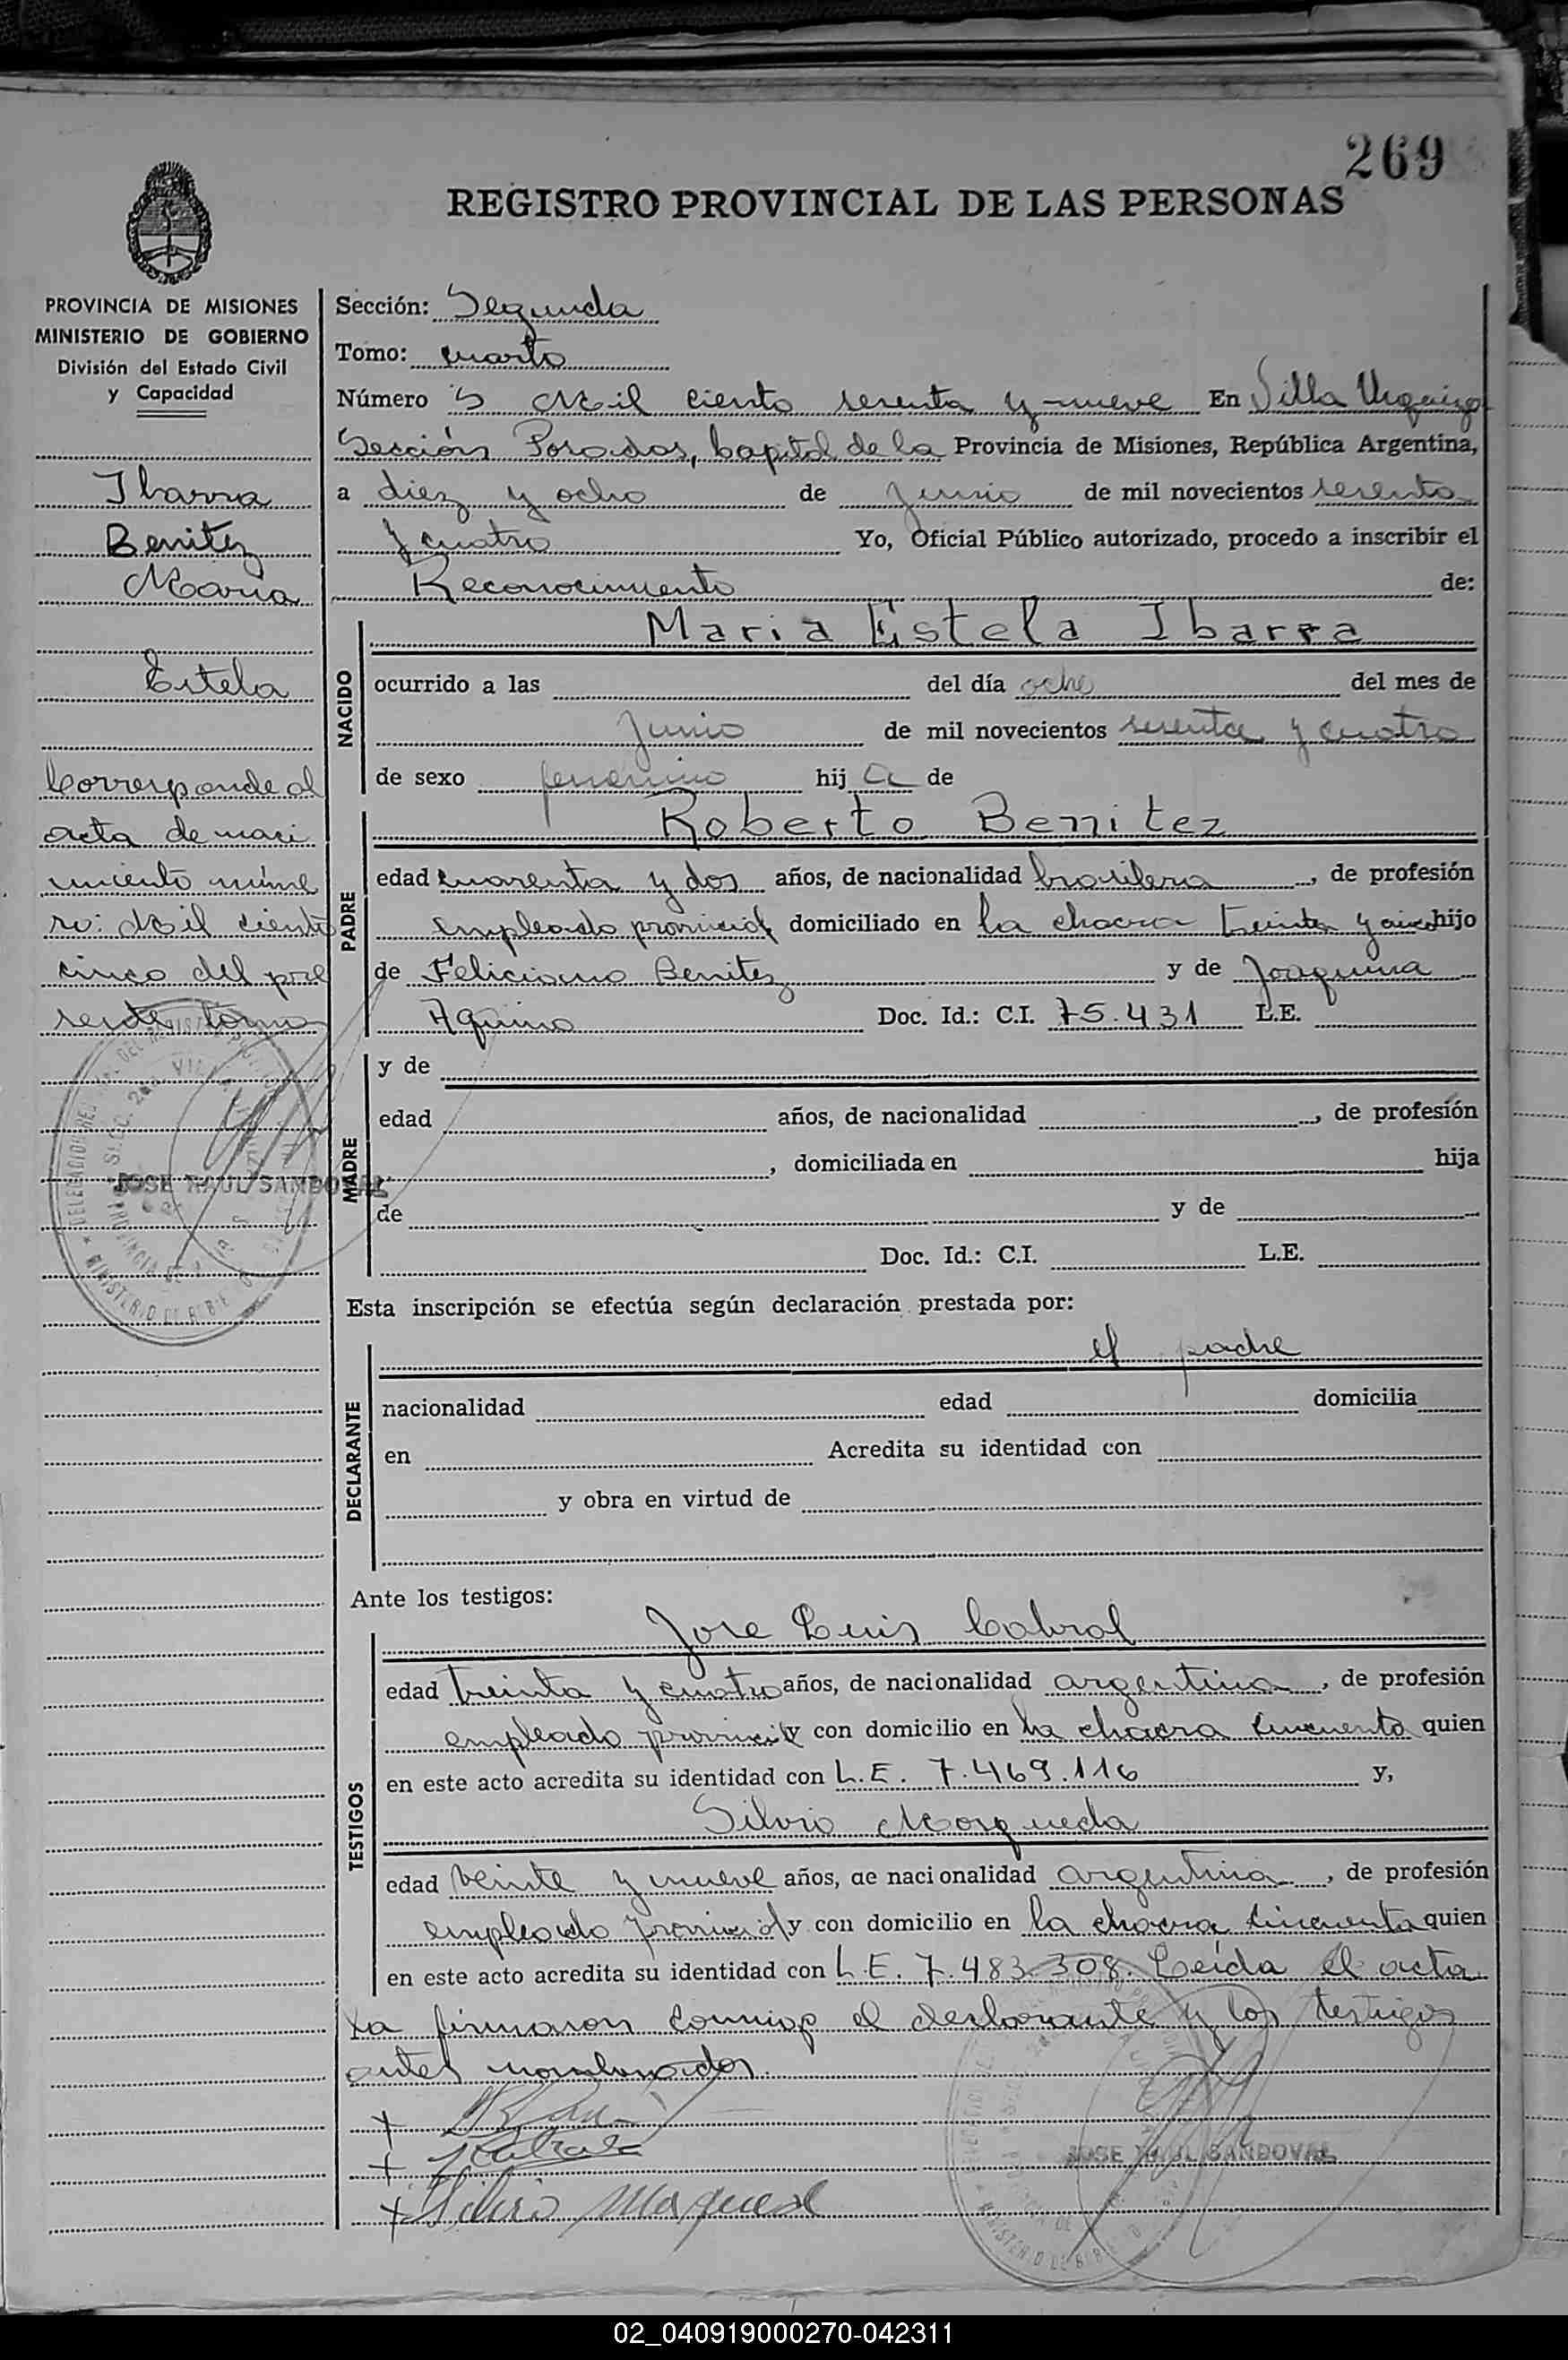 269
REGISTRO PROVINCIAL DE LAS PERSONAS
PROVINCIA DE MISIONES
MINISTERIO DE GOBIERNO
División del Estado Civil
y Capacidad
Ibarra
Benitez
Maria
Estela
Corresponde al
acta de naci
miento núme
ro: Mil ciento
cinco del pre
sente tomo
JOSE RAUL SANDOVAL
Sección: Segunda
Tomo: cuarto
Número Mil ciento sesenta y nueve En Villa Urquiza
Sección Posadas, Capital de la Provincia de Misiones, República Argentina,
a diez y ocho de Junio de mil novecientos sesenta
y cuatro Yo, Oficial Público autorizado, procedo a inscribir el
Reconocimiento de:
NACIDO
Maria Estela Ibarra
ocurrido a las del día ocho del mes de
Junio de mil novecientos sesenta y cuatro
de sexo femenino hij a de
PADRE
Roberto Benitez
edad cuarenta y dos años, de nacionalidad brasilera, de profesión
empleado provincial, domiciliado en la chacra treinta y cinco hijo
de Feliciano Benitez y de Joaquina
Aquino Doc. Id.: C.I. 75.431 L.E.
MADRE
y de
edad años, de nacionalidad , de profesión
, domiciliada en hija
de y de
Doc. Id.: C.I. L.E.
Esta inscripción se efectúa según declaración prestada por:
DECLARANTE
el padre
nacionalidad edad domicilia
en Acredita su identidad con
y obra en virtud de
Ante los testigos:
TESTIGOS
Jose Luis Cabral
edad treinta y cuatro años, de nacionalidad argentina, de profesión
empleado provincial y con domicilio en la chacra cincuenta quien
en este acto acredita su identidad con L.E. 7.469.116 y,
Silvio Morqueda
edad veinte y nueve años, de nacionalidad argentina, de profesión
empleado provincial y con domicilio en la chacra cincuenta quien
en este acto acredita su identidad con L.E. 7.483.308. Leída el acta
la firmaron conmigo el declarante y los testigos
antes nombrados.
JOSE RAUL SANDOVAL
02_040919000270-042311